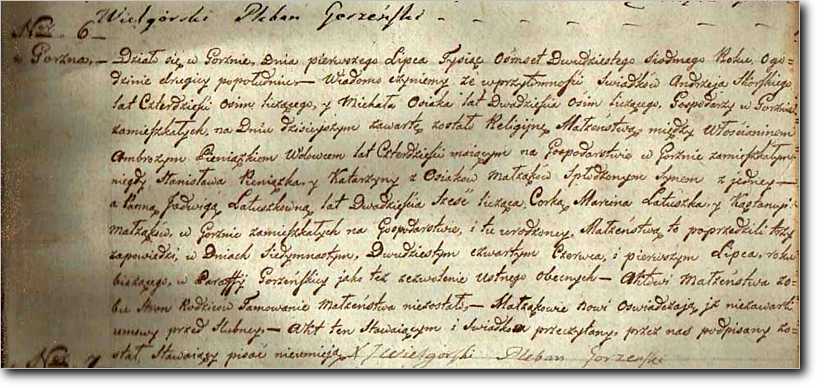 Wielgórski Pleban Gorzeński
Nro 6
Gorzna,
Dział się w Gorznie, Dnia pierwszego Lipca Tysiąc Ośmset Dwudziestego Siodmego Roku, o go-
dzinie drugiey popołudniu, — Wiadomo czyniemy że w przytomności Swiadków Andrzeja Skorskiego
lat Czterdzieści Osim liczącego, y Michała Osiaka lat Dwadzieścia Osim liczącego, Gospodarzy w Gorznie
zamieszkałych, na Dniu dzisieyszym zawarte zostało Religijne Małżeństwo, między Włościaninem
Ambrozym Pieniążkiem Wdowcem lat Czterdzieści maiącym na Gospodarstwie w Gorznie zamieszkałym,
niegdy Stanisława Pieniążka, y Katarzyny z Osiaków Małżąków Spłodzonym Synem z jedney —
a Panną Jadwigą Latuszkówną lat Dwadzieścia Sześć licząca, Corką Marcina Latuszka, y Kostancyi
małżąków, w Gorznie zamieszkałych na Gospodarstwie, i tu urodzoney, Małżeństwo to poprzedzili trzy
zapowiedzi, w Dniach Siedymnastym, Dwudziestym czwartym Czerwca, i pierwszym Lipca, roku
biezącego, w Paraffij Gorzeńskiey jako też zezwolenie Ustnego obecnych — Aktowi Małżeństwa zo-
bu Stron Rodziców Tamowanie Małżeństwa niezostało, — Małżąkowie Nowi Oswiadczają, iż niezawarli
umowy przed Slubney, — Akt ten Stawaiącym i Swiadkom przeczytany, przez nas podpisany zo-
stał, Stawaiący pisać nieumieją X J Wielgorski Pleban Gorzeński
Nro 7